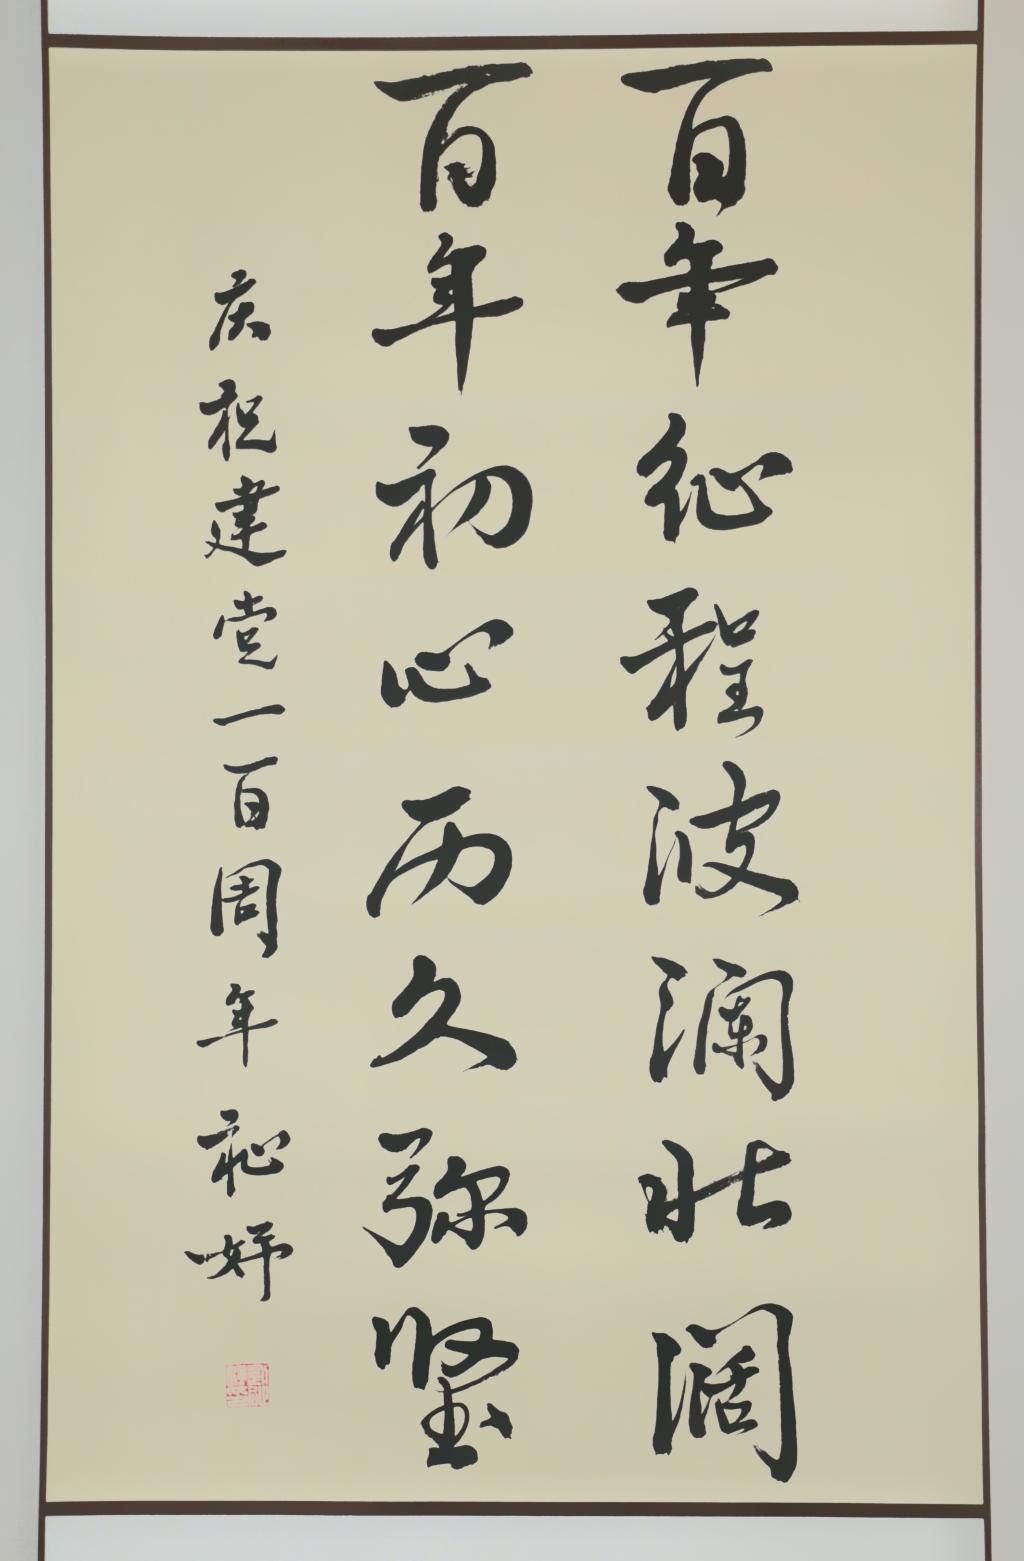 百年征程波澜壮阔
百年初心历久弥坚
庆祝建党一百周年